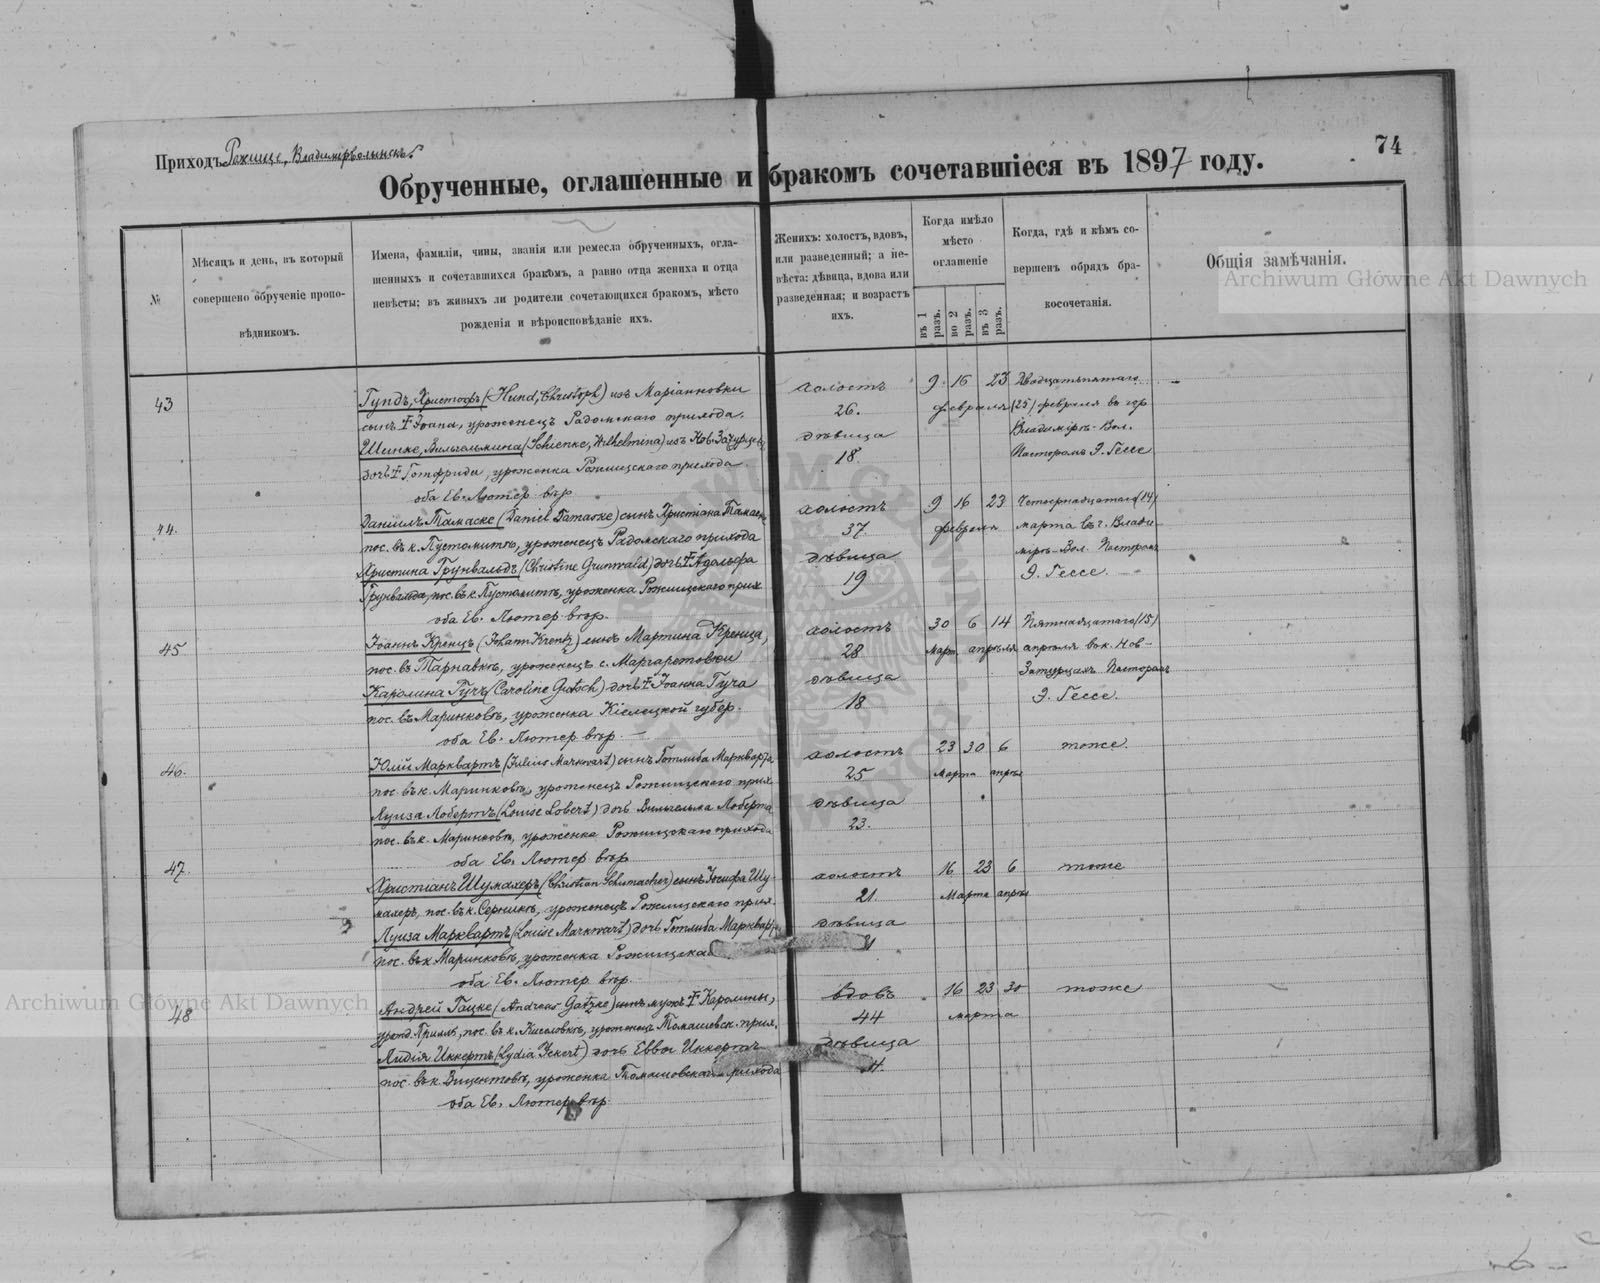 74
Приходъ Рожище, Владимірволынскъ.
Обрученные, оглашенные и бракомъ сочетавшіеся въ 1897 году.
№
Мѣсяцъ и день, въ который
совершено обрученіе пропо-
вѣдникомъ.
Имена, фамиліи, чины, званія или ремесла обрученныхъ, огла-
шенныхъ и сочетавшихся бракомъ, а равно отца жениха и отца
невѣсты; въ живыхъ ли родители сочетающихся бракомъ, мѣсто
рожденія и вѣроисповѣданіе ихъ.
Женихъ: холостъ, вдовъ,
или разведенный; а не-
вѣста: дѣвица, вдова или
разведенная; и возрастъ
ихъ.
Когда имѣло
мѣсто
оглашеніе
въ 1 разъ.
во 2 разъ.
въ 3 разъ.
Когда, гдѣ и кѣмъ со-
вершенъ обрядъ бра-
косочетанія.
Общія замѣчанія.
Archiwum Główne Akt Dawnych
43
Гундъ, Христофъ (Hund, Christoph) изъ Маріановки
сынъ † Іоана, уроженецъ Радомскаго прихода.
Шинке, Вильгельмина (Schienke, Wilhelmina) изъ Нов. Затурцевъ
дочь † Готфрида, уроженка Рожищскаго прихода
оба Ев. Лютер. вѣр.
холостъ
26.
дѣвица
18.
9. 16 23
февраля
Двадцатьпятаго
(25) февраля въ гор
Владиміръ-Вол.
Пасторомъ Э. Гессе
44.
Даніилъ Тамаске (Daniel Tamaske) сынъ Христіана Тамаске
пос. въ к. Пустомитѣ, уроженецъ Радомскаго прихода
Христина Грунвальдъ (Christine Grunwald) дочь † Адольфа
Грунвальда, пос. въ к. Пустомитѣ, уроженка Рожищскаго прих
оба Ев. Лютер. вѣр.
холостъ
37
дѣвица
19
9 16 23
февраля
Четырнадцатаго (14)
марта въ г. Влади-
міръ-Вол. Пасторомъ
Э. Гессе.
45
Іоаннъ Кренцъ (Johann Krentz) сынъ Мартина Кренца,
пос. въ Тарнавкѣ, уроженецъ с. Маргаретовки
Каролина Гучъ (Caroline Gutsch) дочь † Іоанна Гуча
пос. въ Маринковѣ, уроженка Кіелецкой губер.
оба Ев. Лютер. вѣр.
холостъ
28
дѣвица
18
30 6 14
Март. апрѣля
Пятнадцатаго (15)
апрѣля въ к. Нов-
Затурцахъ Пасторомъ
Э. Гессе.
46.
Юлій Марквартъ (Julius Markwart) сынъ Готлиба Маркварта
пос. въ к. Маринковѣ, уроженецъ Рожищскаго прих.
Луиза Лобертъ (Louise Lobert) дочь Вильгельма Лоберта
пос. въ к. Маринковѣ, уроженка Рожищскаго прихода
оба Ев. Лютер. вѣр.
холостъ
25
дѣвица
23.
23 30 6
марта апрѣл
тоже.
47.
Христіанъ Шумахеръ (Christian Schumacher) сынъ Іосифа Шу-
махеръ, пос. въ к. Серникѣ, уроженецъ Рожищскаго прих.
Луиза Марквартъ (Louise Markwart) дочь Готлиба Маркварта
пос. въ к Маринковѣ, уроженка Рожищска
оба Ев. Лютер. вѣр.
холостъ
21
дѣвица
16 23 6
Марта апрѣл
тоже
48
Андрей Гацке (Andreas Gatzke) сынъ мужъ † Каролины,
урожд. Прилль, пос. въ к. Киселовкѣ, уроженецъ Томашевск. прих.
Лидія Иккертъ (Lydia Ickert) дочь Еввы Иккертъ
пос. въ к. Вицентовѣ, уроженка Томашовска прихода
оба Ев. Лютер. вѣр.
вдовъ
44
дѣвица
16 23 30
марта
тоже
Archiwum Główne Akt Dawnych